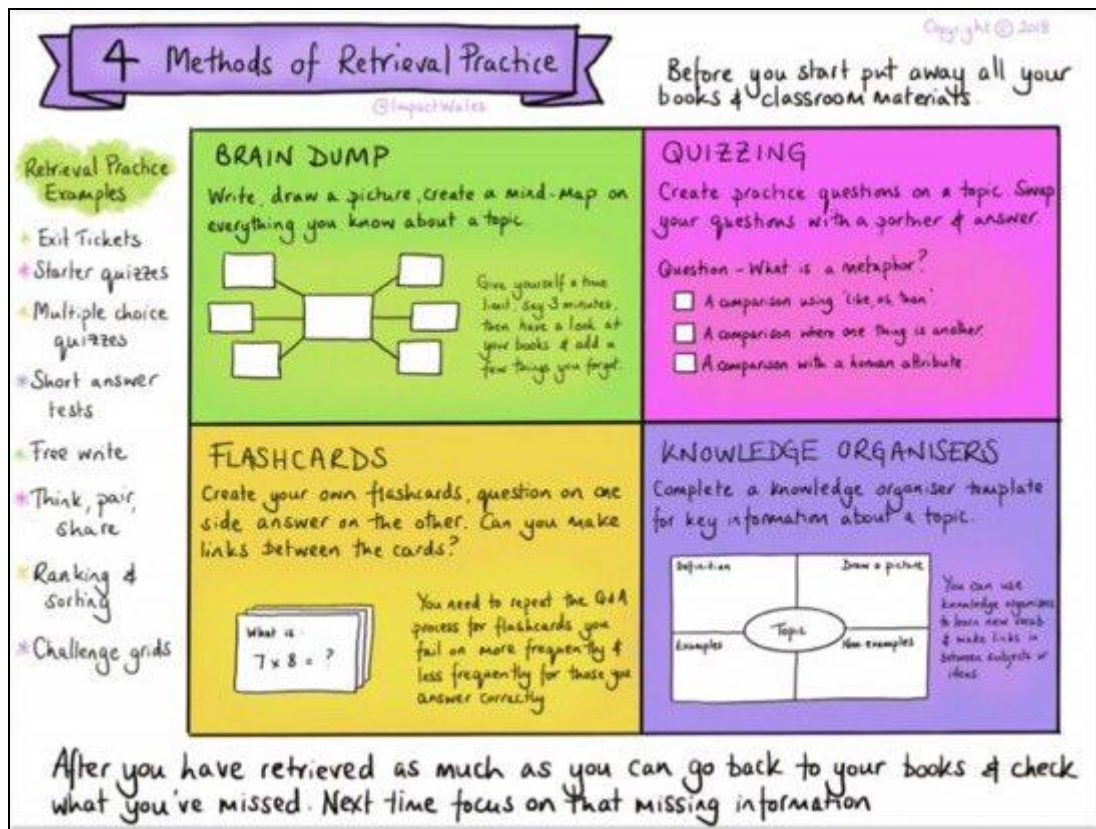 Copyright © 2018
4 Methods of Retrieval Practice
@ImpactWales
Before you start put away all your
books & classroom materials.
Retrieval Practice
Examples
Exit Tickets
Starter quizzes
Multiple choice
quizzes
Short answer
tests
Free write
Think, pair,
share
Ranking &
sorting
Challenge grids
BRAIN DUMP
Write, draw a picture, create a mind-map on
everything you know about a topic.
Give yourself a time
limit, say 3 minutes,
then have a look at
your books & add a
few things you forgot.
QUIZZING
Create practice questions on a topic. Swap
your questions with a partner & answer.
Question - What is a metaphor?
A comparison using 'like, as, than'
A comparison where one thing is another.
A comparison with a human attribute.
FLASHCARDS
Create your own flashcards, question on one
side answer on the other. Can you make
links between the cards?
What is
7 x 8 = ?
You need to repeat the Q&A
process for flashcards you
fail on more frequently &
less frequently for those you
answer correctly
KNOWLEDGE ORGANISERS
Complete a knowledge organiser template
for key information about a topic.
Definition
Draw a picture
Topic
Examples
Non examples
You can use
knowledge organisers
to learn new vocab
& make links in
between subjects or
ideas
After you have retrieved as much as you can go back to your books & check
what you've missed. Next time focus on that missing information